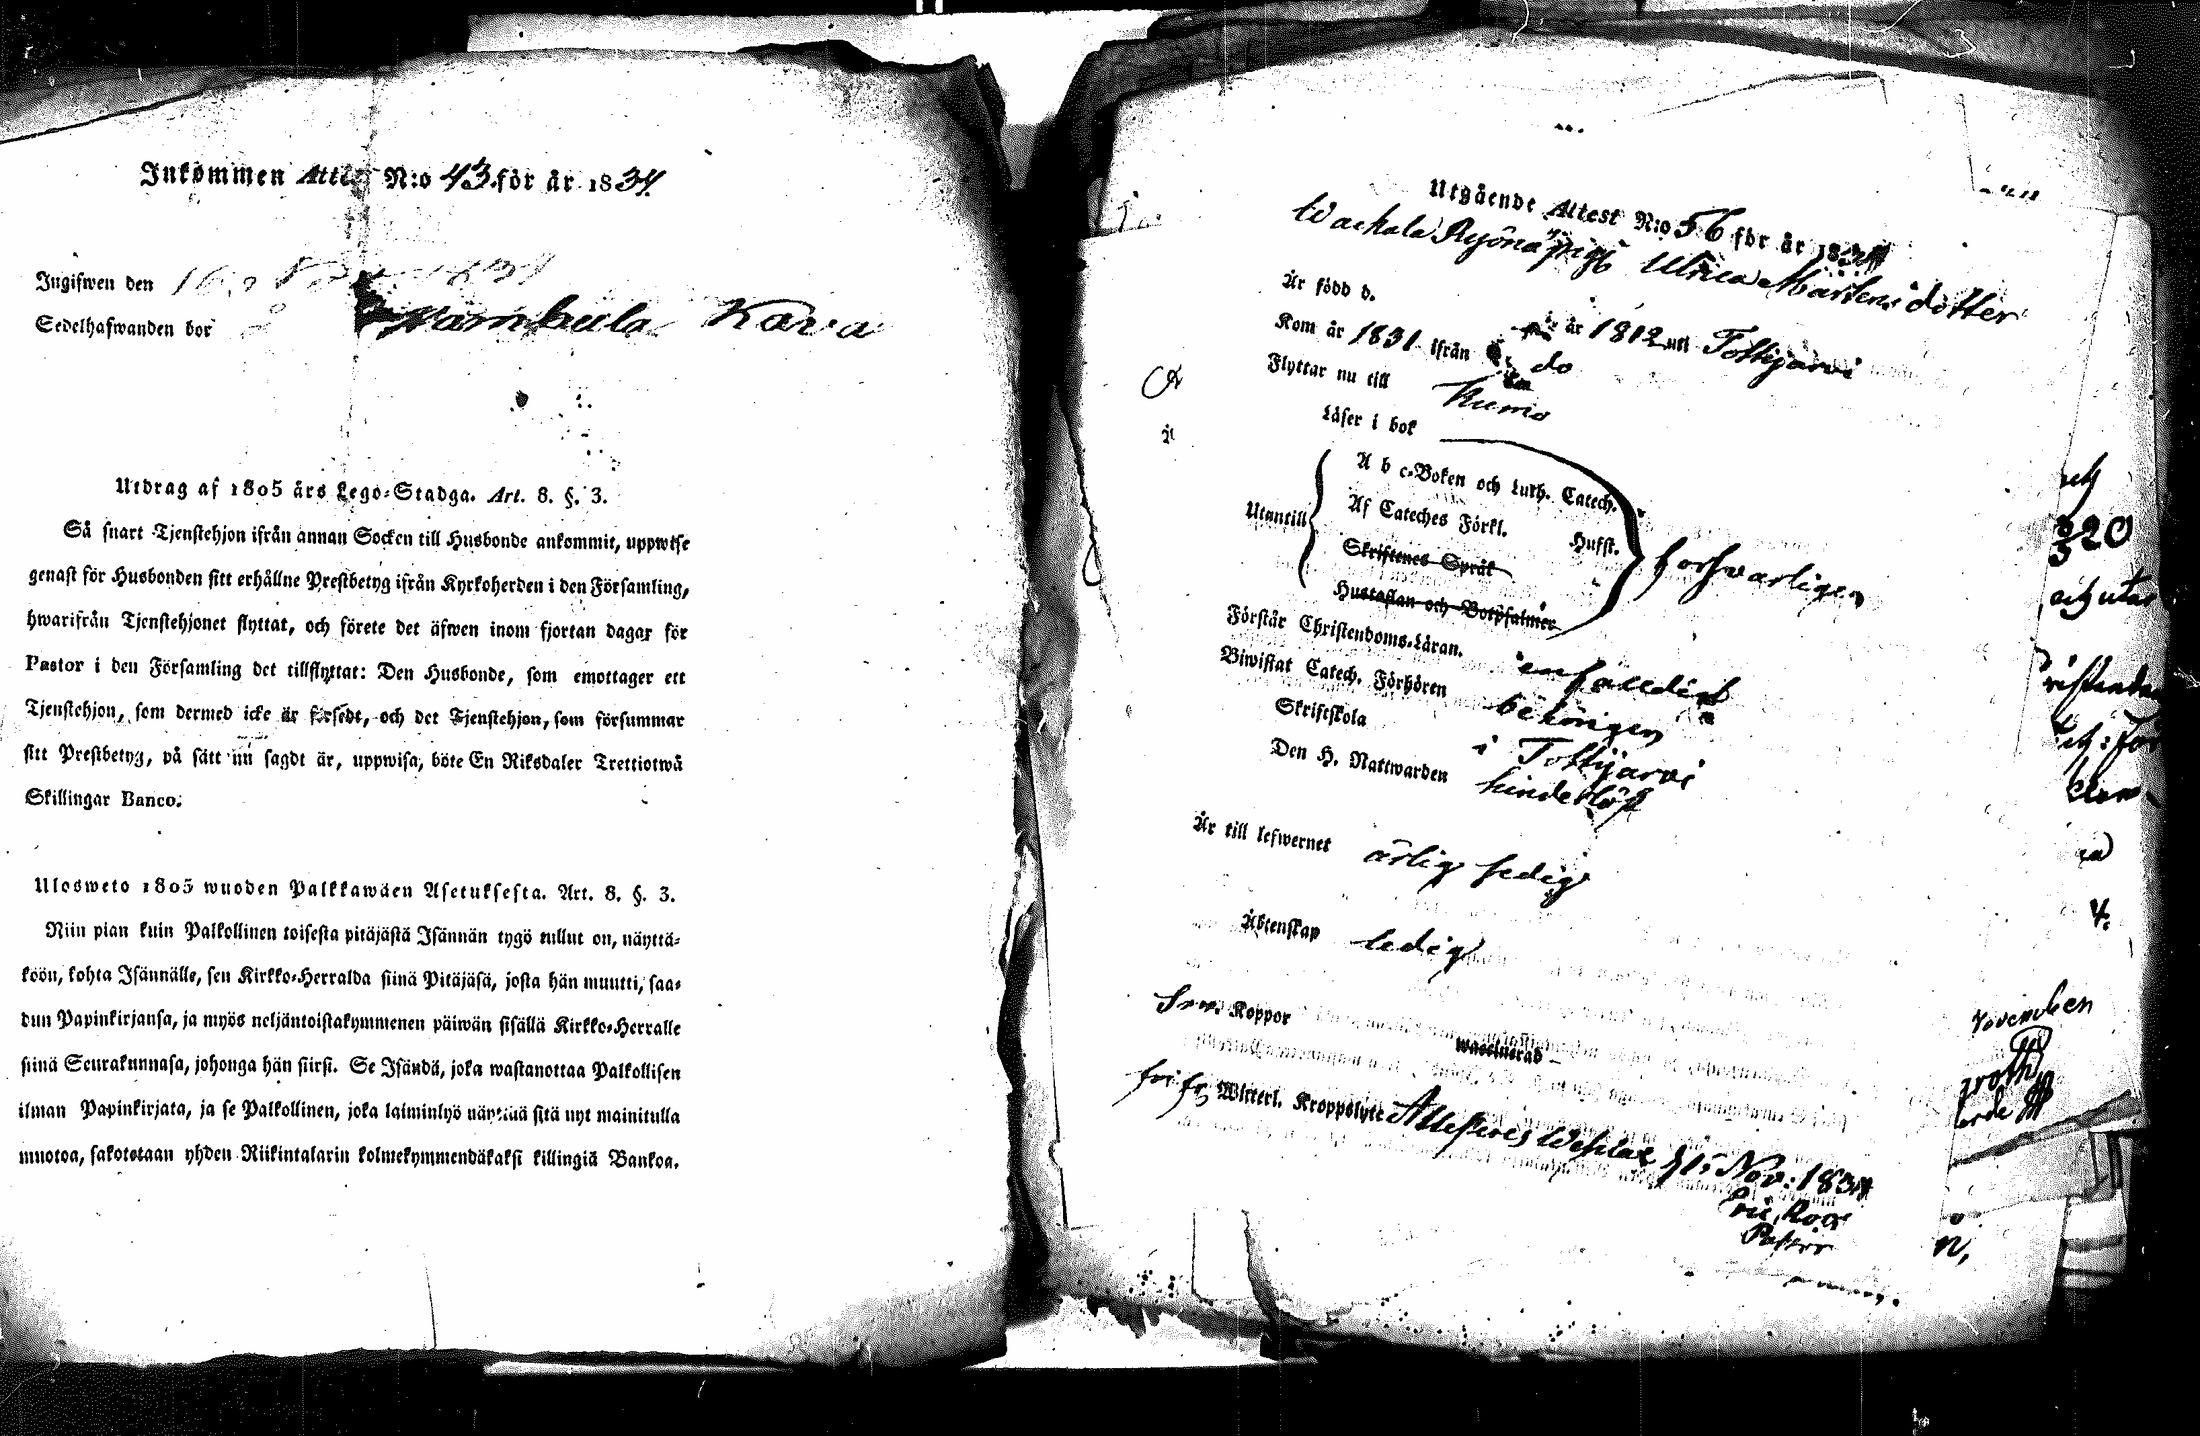 Inkommen Attest N:o 43 för år 1834.
Ingifwen den 16 Nov 1834
Sedelhafwanden bor Kara
Utdrag af 1805 års Lego-Stadga. Art. 8. §. 3.
Så snart Tjenstehjon ifrån annan Socken till Husbonde ankommit, uppwise
genast för Husbonden sitt erhållne Prestbetyg ifrån Kyrkoherden i den Församling,
hwarifrån Tjenstehjonet flyttat, och förete det äfwen inom fjortan dagar för
Pastor i den Församling det tillflyttat: Den Husbonde, som emottager ett
Tjenstehjon, som dermed icke är försedt, och det Tjenstehjon, som försummar
sitt Prestbetyg, på sätt nu sagdt är, uppwisa, böte En Riksdaler Trettiotwå
Skillingar Banco.
Ulosweto 1805 wuoden Palkkawäen Asetuksesta. Art. 8. §. 3.
Niin pian kuin Palkollinen toisesta pitäjästä Isännän tygö tullut on, näyttä-
köön, kohta Isännälle, sen Kirkko-Herralda siinä Pitäjäsä, josta hän muutti, saa-
dun Papinkirjansa, ja myös neljäntoistakymmenen päiwän sisällä Kirkko-Herralle
siinä Seurakunnasa, johonga hän siirsi. Se Isändä, joka wastanottaa Palkollisen
ilman Papinkirjata, ja se Palkollinen, joka laiminlyö näyttää sitä nyt mainitulla
muotoa, sakotetaan yhden Riikintalarin kolmekymmendäkaksi killingiä Bankoa.
Utgående Attest N:o 56 för år 1834
pig. Ulrica Mårtensdotter
Är född d. år 1812 uti Tottijärvi
Kom år 1831 ifrån do
Flyttar nu till Kumo
Läser i bok
A b c-Boken och Luth. Catech.
Utantill Af Cateches Förkl. Hufst. försvarligen
Skriftenes Språk
Hustaflan och Botpsalmer
Förstår Christendoms-Läran. enfaldigt
Biwistat Catech. Förhören behörigen
Skriftskola i Tottijärvi
Den H. Nattwarden hinderlöst
Är till lefwernet ärlig sedig
Äktenskap ledig
Koppor
waccinerad
fri fr. Witterl. Kroppslyte Attesteras Wesilax d 15 Nov: 1834
Eric Roos
Pastor
320